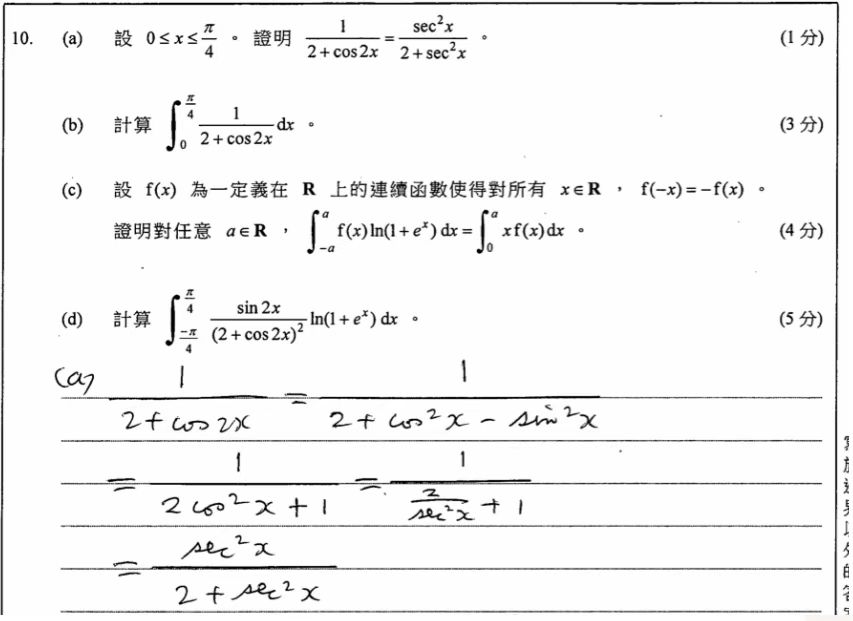 10. (a) 設 0 ≤ x ≤ π/4 。 證明 1/(2+cos2x) = sec²x/(2+sec²x) 。 (1 分)
(b) 計算 ∫₀^(π/4) 1/(2+cos2x) dx 。 (3 分)
(c) 設 f(x) 為一定義在 R 上的連續函數使得對所有 x∈R , f(−x)=−f(x) 。
證明對任意 a∈R , ∫_(−a)^a f(x)ln(1+eˣ) dx = ∫₀^a x f(x) dx 。 (4 分)
(d) 計算 ∫_(−π/4)^(π/4) sin2x/(2+cos2x)² ln(1+eˣ) dx 。 (5 分)
(a) 1/(2+cos2x) = 1/(2+cos²x − sin²x)
= 1/(2cos²x + 1) = 1/(2/sec²x + 1)
= sec²x/(2+sec²x)